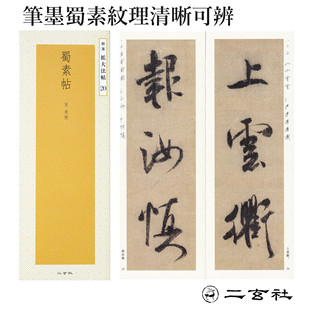 筆墨蜀素紋理清晰可辨
拡大法帖
20
蜀素帖
二玄社
上雲衢
報汝慎
二玄社